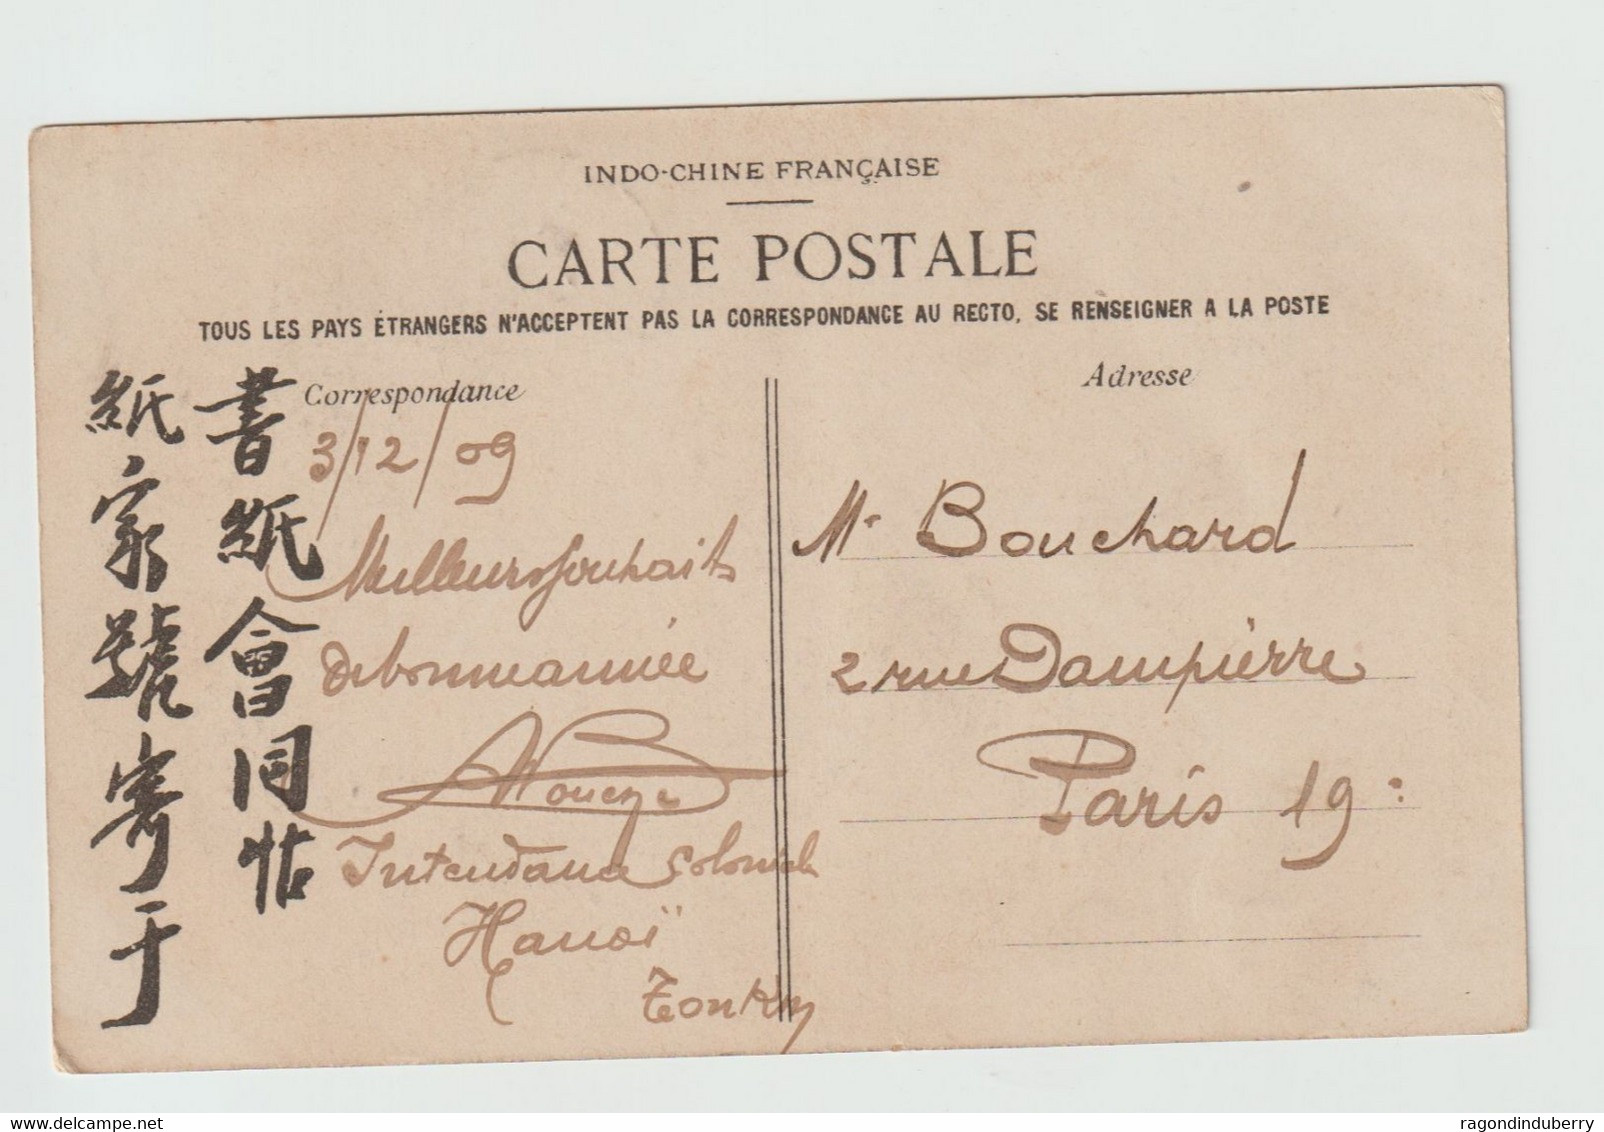 INDO-CHINE FRANÇAISE
CARTE POSTALE
TOUS LES PAYS ÉTRANGERS N'ACCEPTENT PAS LA CORRESPONDANCE AU RECTO, SE RENSEIGNER A LA POSTE
Correspondance
3/12/09
Meilleurs Souhaits
de bonne année
Intendance Coloniale
Hanoï
Tonkin
書紙會同帖
紙家號寄于
Adresse
Mr Bouchard
2 rue Dampierre
Paris 19e
ragondinduberry